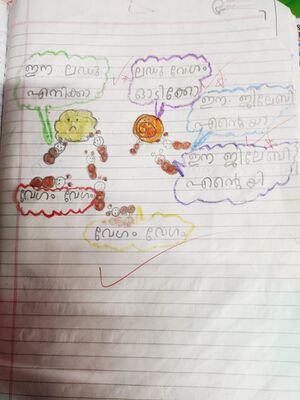 ഈ ലഡു
എനിക്കാ
ലഡു വേഗം
ഓടിക്കോ
ഈ ജിലേബി
എന്റെയാ
ഈ ജിലേബി
എന്റെയി
വേഗം വേഗം
വേഗം വേഗം